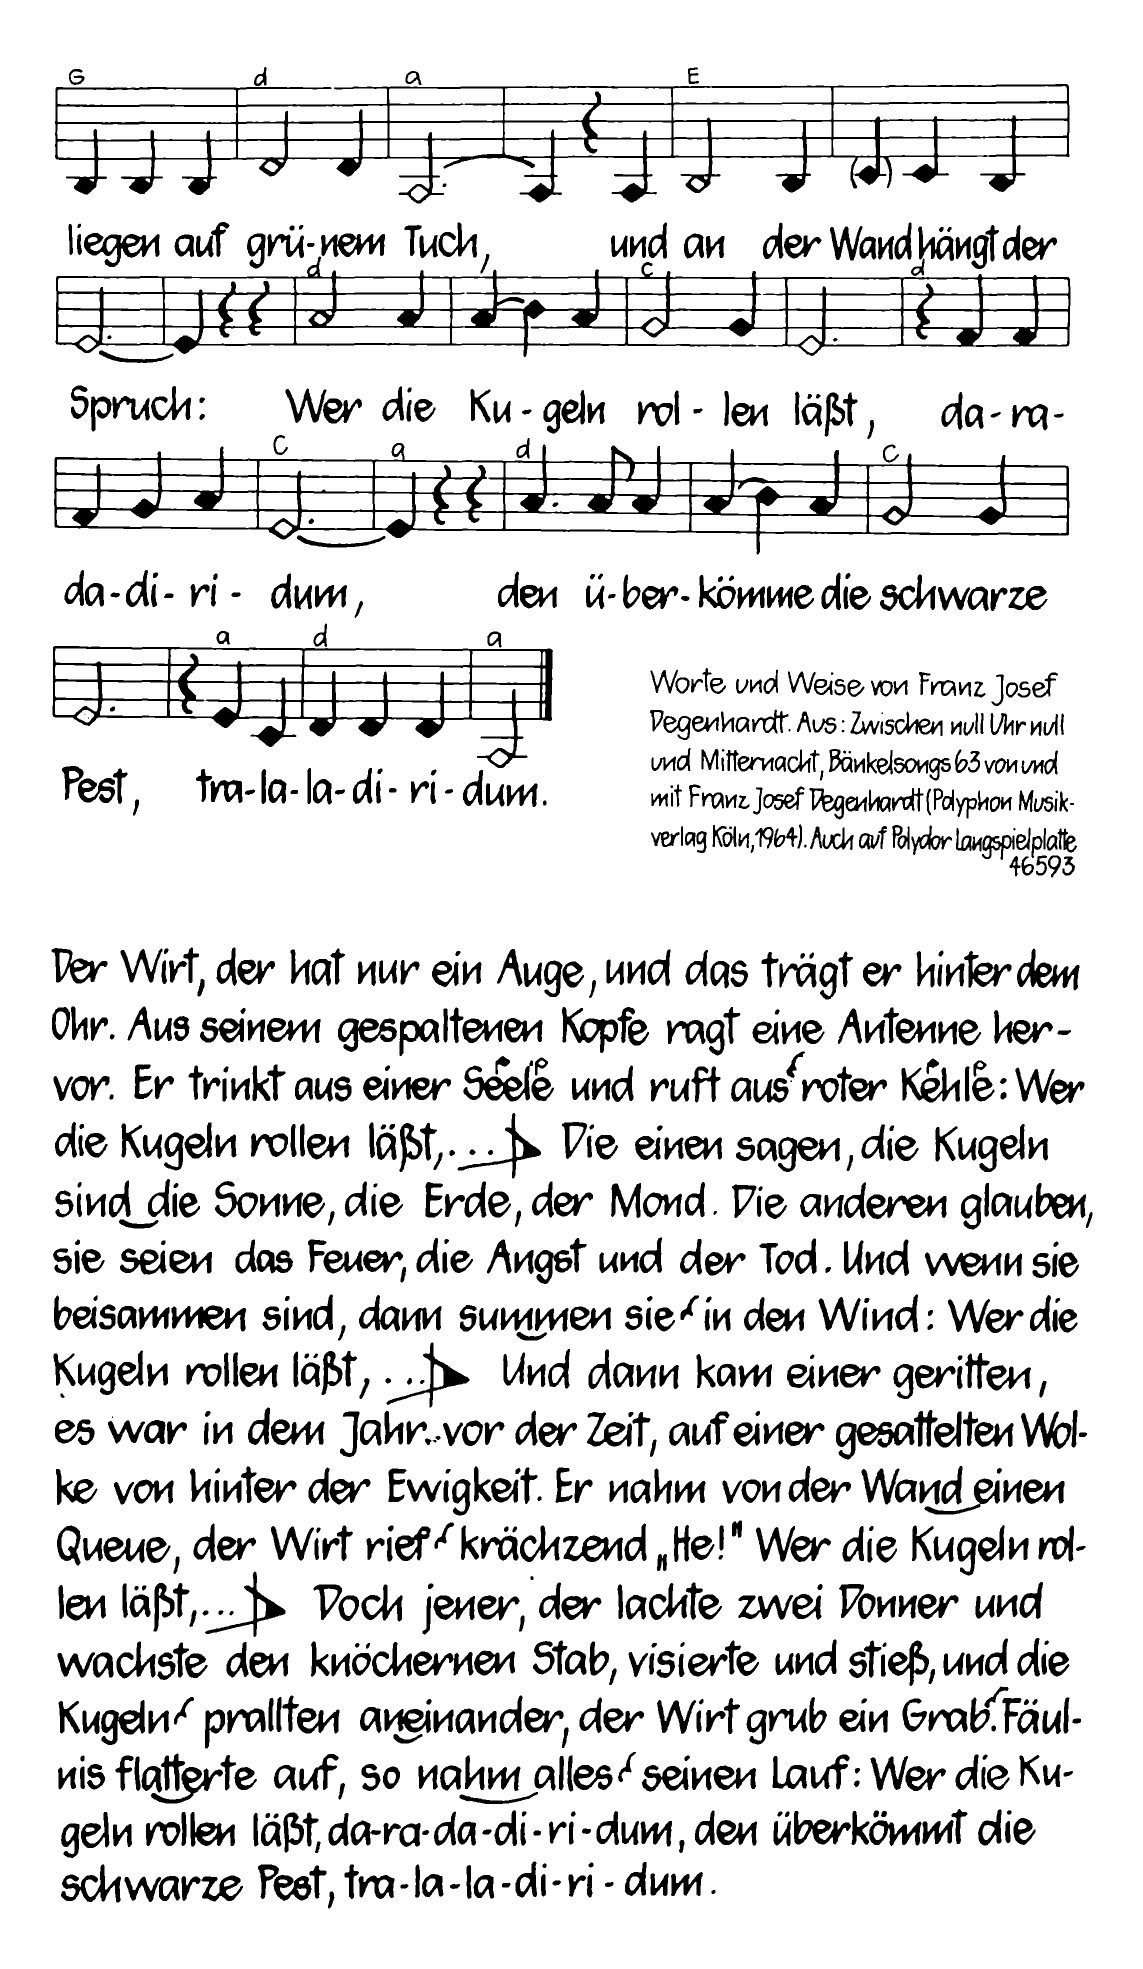 G d a E
liegen auf grü-nem Tuch, und an der Wand hängt der
d C d
Spruch: Wer die Ku-geln rol-len läßt, da-ra-
C a d C
da-di-ri-dum, den ü-ber-kömme die schwarze
a d a
Pest, tra-la-la-di-ri-dum.
Worte und Weise von Franz Josef
Degenhardt. Aus: Zwischen null Uhr null
und Mitternacht, Bänkelsongs 63 von und
mit Franz Josef Degenhardt (Polyphon Musik-
verlag Köln, 1964). Auch auf Polydor Langspielplatte
46593
Der Wirt, der hat nur ein Auge, und das trägt er hinter dem
Ohr. Aus seinem gespaltenen Kopfe ragt eine Antenne her-
vor. Er trinkt aus einer Seele und ruft aus roter Kehle: Wer
die Kugeln rollen läßt,... Die einen sagen, die Kugeln
sind die Sonne, die Erde, der Mond. Die anderen glauben,
sie seien das Feuer, die Angst und der Tod. Und wenn sie
beisammen sind, dann summen sie in den Wind: Wer die
Kugeln rollen läßt, ... Und dann kam einer geritten,
es war in dem Jahr vor der Zeit, auf einer gesattelten Wol-
ke von hinter der Ewigkeit. Er nahm von der Wand einen
Queue, der Wirt rief krächzend „He!" Wer die Kugeln rol-
len läßt,... Doch jener, der lachte zwei Donner und
wachste den knöchernen Stab, visierte und stieß, und die
Kugeln prallten aneinander, der Wirt grub ein Grab. Fäul-
nis flatterte auf, so nahm alles seinen Lauf: Wer die Ku-
geln rollen läßt, da-ra-da-di-ri-dum, den überkömmt die
schwarze Pest, tra-la-la-di-ri-dum.